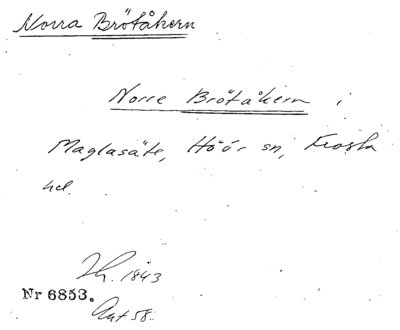 Norra Brötåkern
Norre Brötåkern i
Maglasäte, Höör sn, Frosta
hd.
Lh. 1843
Nr 6853.
Avt 58.